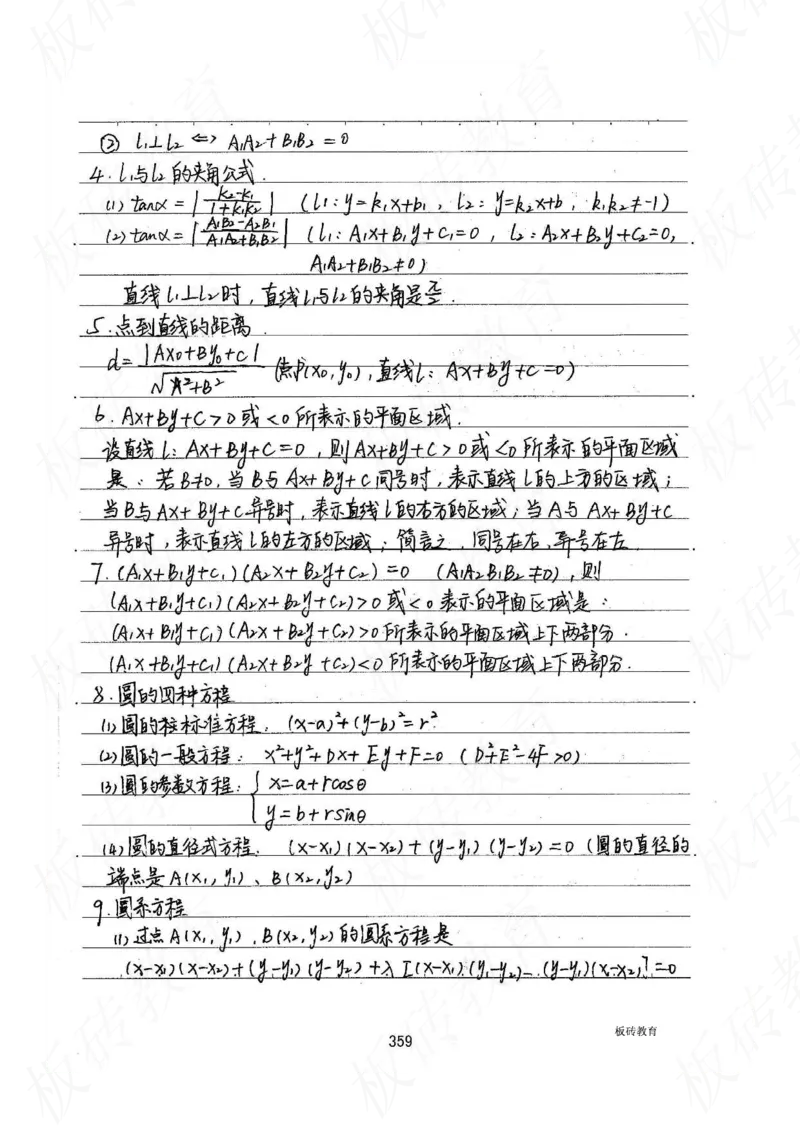 ② l₁⊥l₂ ⇔ A₁A₂+B₁B₂=0
4. l₁与l₂的夹角公式.
(1) tanα=|\frac{k₂-k₁}{1+k₁k₂}| (l₁:y=k₁x+b₁, l₂:y=k₂x+b, k₁k₂≠-1)
(2) tanα=|\frac{A₁B₂-A₂B₁}{A₁A₂+B₁B₂}| (l₁:A₁x+B₁y+C₁=0, l₂:A₂x+B₂y+C₂=0,
A₁A₂+B₁B₂≠0)
直线l₁⊥l₂时,直线l₁与l₂的夹角是\frac{π}{2}.
5.点到直线的距离.
d=\frac{|Ax₀+By₀+C|}{\sqrt{A²+B²}} (点P(x₀,y₀),直线l:Ax+By+C=0)
6. Ax+By+C>0或<0所表示的平面区域.
设直线l:Ax+By+C=0,则Ax+By+C>0或<0所表示的平面区域
是:若B≠0,当B与Ax+By+C同号时,表示直线l的上方的区域;
当B与Ax+By+C异号时,表示直线l的右方的区域;当A与Ax+By+C
异号时,表示直线l的左方的区域;简言之,同号在右,异号在左.
7. (A₁x+B₁y+C₁)(A₂x+B₂y+C₂)=0 (A₁A₂B₁B₂≠0),则
(A₁x+B₁y+C₁)(A₂x+B₂y+C₂)>0或<0表示的平面区域是:
(A₁x+B₁y+C₁)(A₂x+B₂y+C₂)>0所表示的平面区域上下两部分.
(A₁x+B₁y+C₁)(A₂x+B₂y+C₂)<0所表示的平面区域上下两部分.
8.圆的四种方程
(1)圆的标准方程. (x-a)²+(y-b)²=r²
(2)圆的一般方程: x²+y²+Dx+Ey+F=0 (D²+E²-4F>0)
(3)圆的参数方程:{ x=a+rcosθ
y=b+rsinθ
(4)圆的直径式方程. (x-x₁)(x-x₂)+(y-y₁)(y-y₂)=0 (圆的直径的
端点是A(x₁,y₁)、B(x₂,y₂)
9.圆系方程
(1)过点A(x₁,y₁),B(x₂,y₂)的圆系方程是
(x-x₁)(x-x₂)+(y-y₁)(y-y₂)+λ[(x-x₁)(y₁-y₂)-(y-y₁)(x₁-x₂)]=0
板砖教育
359